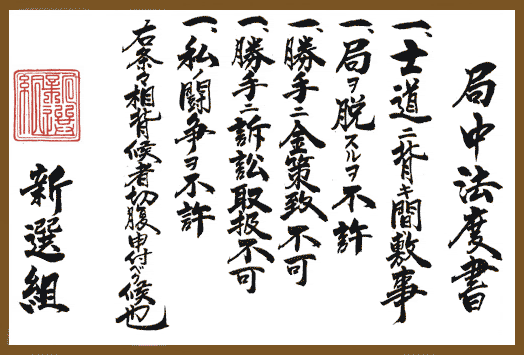 局中法度書
一、士道ニ背キ間敷事
一、局ヲ脱スルヲ不許
一、勝手ニ金策致不可
一、勝手ニ訴訟取扱不可
一、私ノ闘争ヲ不許
右条々相背候者切腹申付ベク候也
新選組
新選組